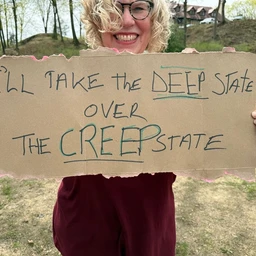 I'LL TAKE THE DEEP STATE
OVER
THE CREEPSTATE